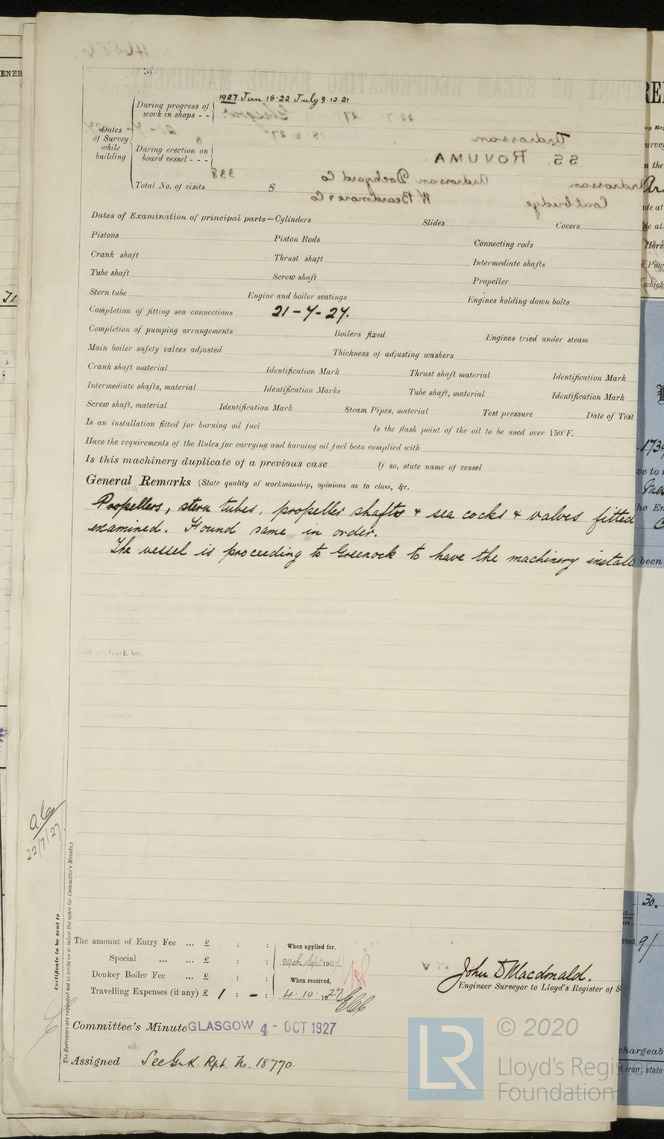 During progress of work in shops - -
1927 Jun 15.22 July 8.12.21
Dates of Survey while building
During erection on board vessel - - -
Total No. of visits 5
Dates of Examination of principal parts—Cylinders Slides Covers
Pistons Piston Rods Connecting rods
Crank shaft Thrust shaft Intermediate shafts
Tube shaft Screw shaft Propeller
Stern tube Engine and boiler seatings Engines holding down bolts
Completion of fitting sea connections 21-7-27.
Completion of pumping arrangements Boilers fixed Engines tried under steam
Main boiler safety valves adjusted Thickness of adjusting washers
Crank shaft material Identification Mark Thrust shaft material Identification Mark
Intermediate shafts, material Identification Marks Tube shaft, material Identification Mark
Screw shaft, material Identification Mark Steam Pipes, material Test pressure Date of Test
Is an installation fitted for burning oil fuel Is the flash point of the oil to be used over 150°F.
Have the requirements of the Rules for carrying and burning oil fuel been complied with
Is this machinery duplicate of a previous case If so, state name of vessel
General Remarks (State quality of workmanship, opinions as to class, &c.
Propellers, stern tubes, propeller shafts & sea cocks & valves fitted
examined. Found same in order.
The vessel is proceeding to Greenock to have the machinery install
a.6/
22/7/27
Certificate to be sent to
The Surveyors are requested not to write on or below the space for Committee's Minute.
The amount of Entry Fee ... £ : : When applied for,
Special ... ... £ : :
Donkey Boiler Fee ... £ : : When received,
Travelling Expenses (if any) £ 1 : - : 4.10.27
John D Macdonald.
Engineer Surveyor to Lloyd's Register of S
Committee's Minute GLASGOW 4 - OCT 1927
Assigned See Gk. Rpt. No. 18770.
LR © 2020
Lloyd's Register
Foundation